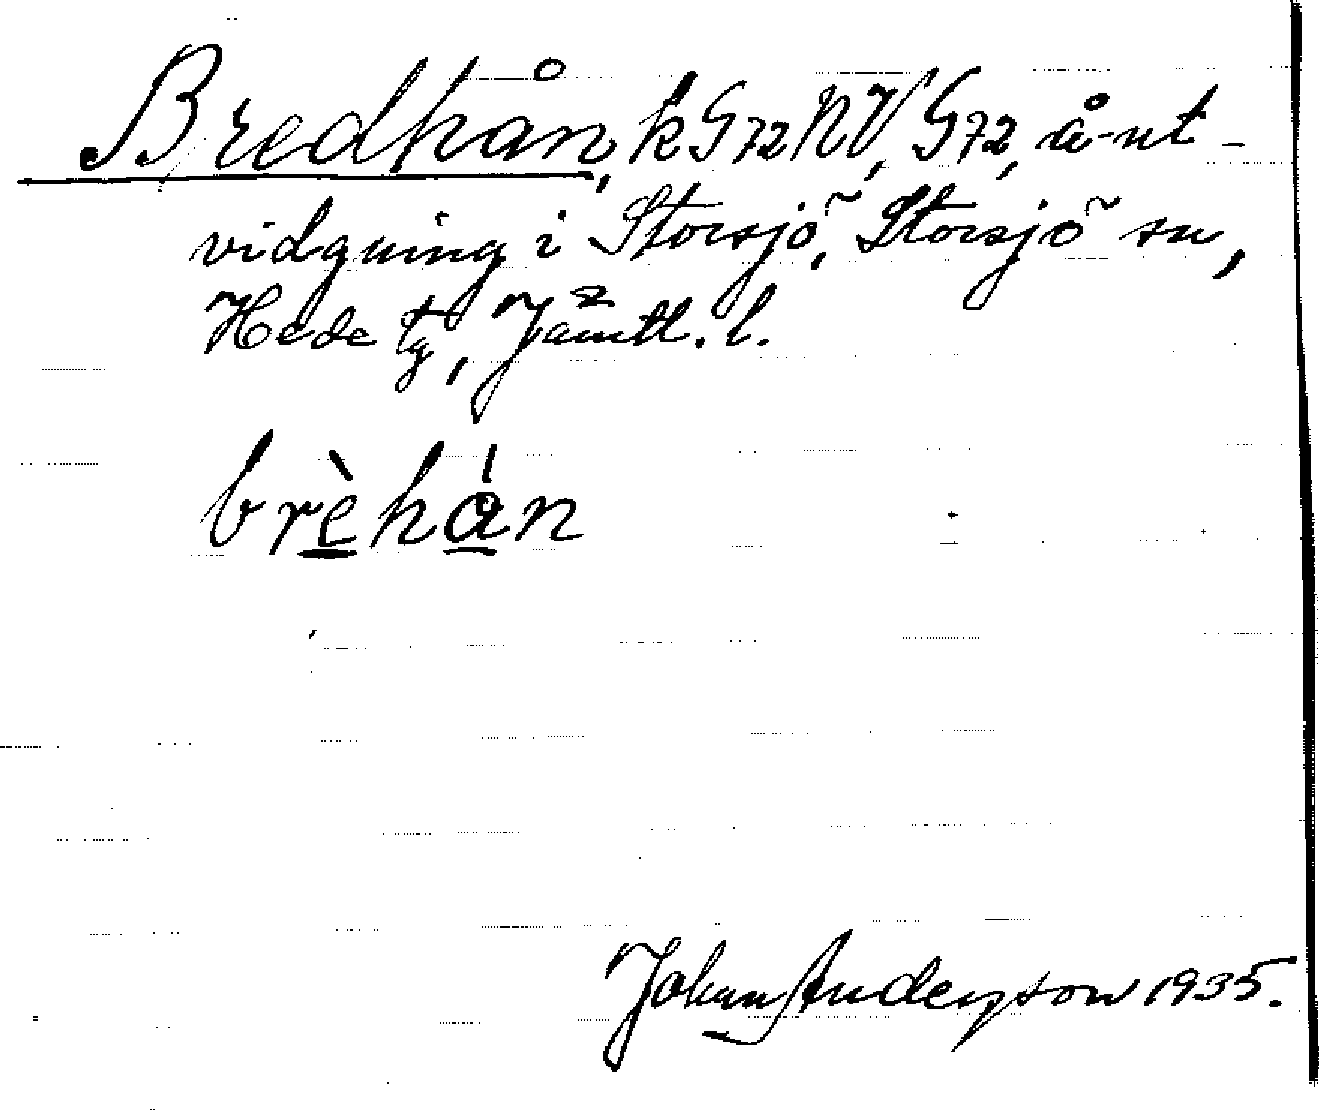 Bredhån, k G72NV, G72, å-ut-
vidgning i Storsjö, Storsjö sn,
Hede tg, Jämtl. l.
brèhån
Johan Anderson 1935.